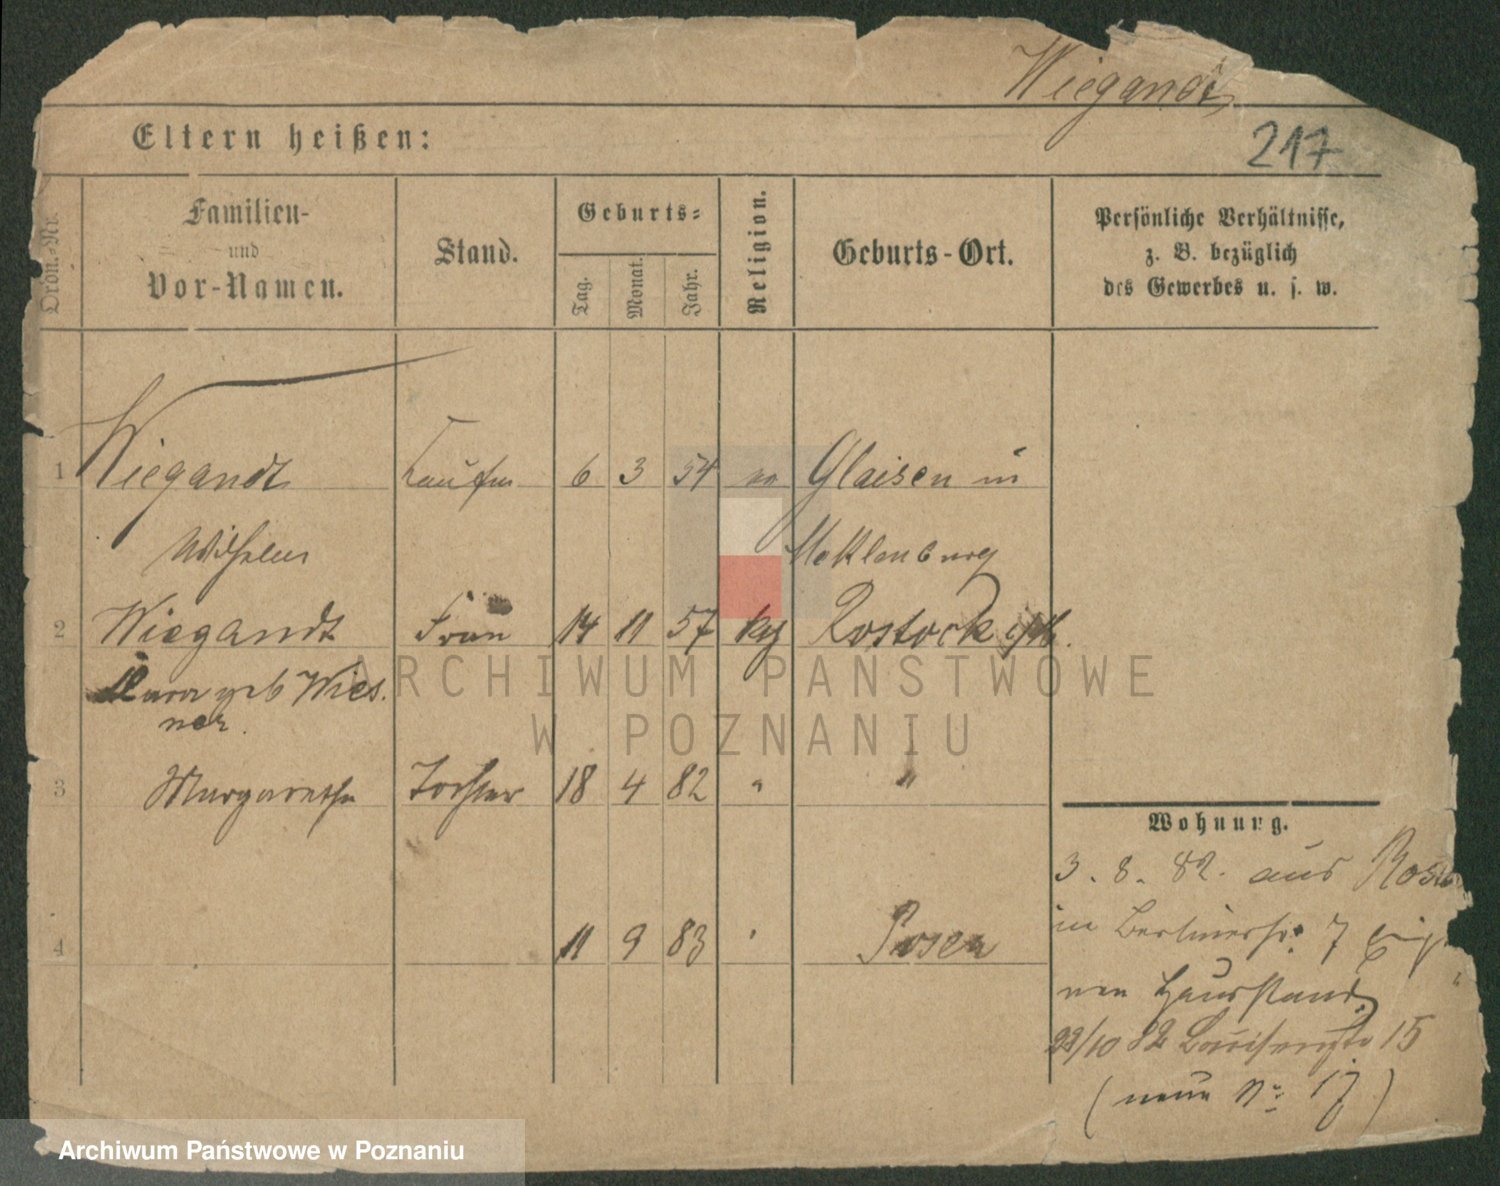 Wiegandt
217
Eltern heißen:
Ordn.-Nr.
Familien-
und
Vor-Namen.
Stand.
Geburts-
Tag.
Monat.
Jahr.
Religion.
Geburts-Ort.
Persönliche Verhältnisse,
z. B. bezüglich
des Gewerbes u. s. w.
1 Wiegandt Kaufm 6 3 54 Glaisen in
Wilhelm Meklenburg
2 Wiegandt Frau 14 11 57 Rostock
geb Wies.
ner.
3 Margarethe Tochter 18 4 82 " "
4 11 9 83 " Posen
Wohnung.
3. 8. 82. aus
in Berlinerstr. 7
nen Hausstand
10 82 15
(neue No 17)
ARCHIWUM PAŃSTWOWE
W POZNANIU
Archiwum Państwowe w Poznaniu